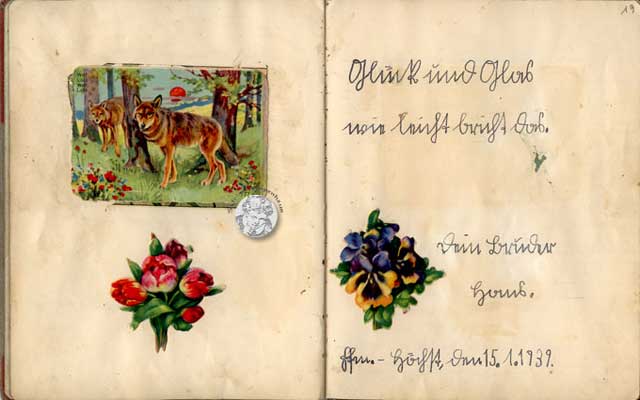 19
Glück und Glas
wie leicht bricht das.
Dein Bruder
Hans.
Ffm.-Höchst, den 15.1.1939.